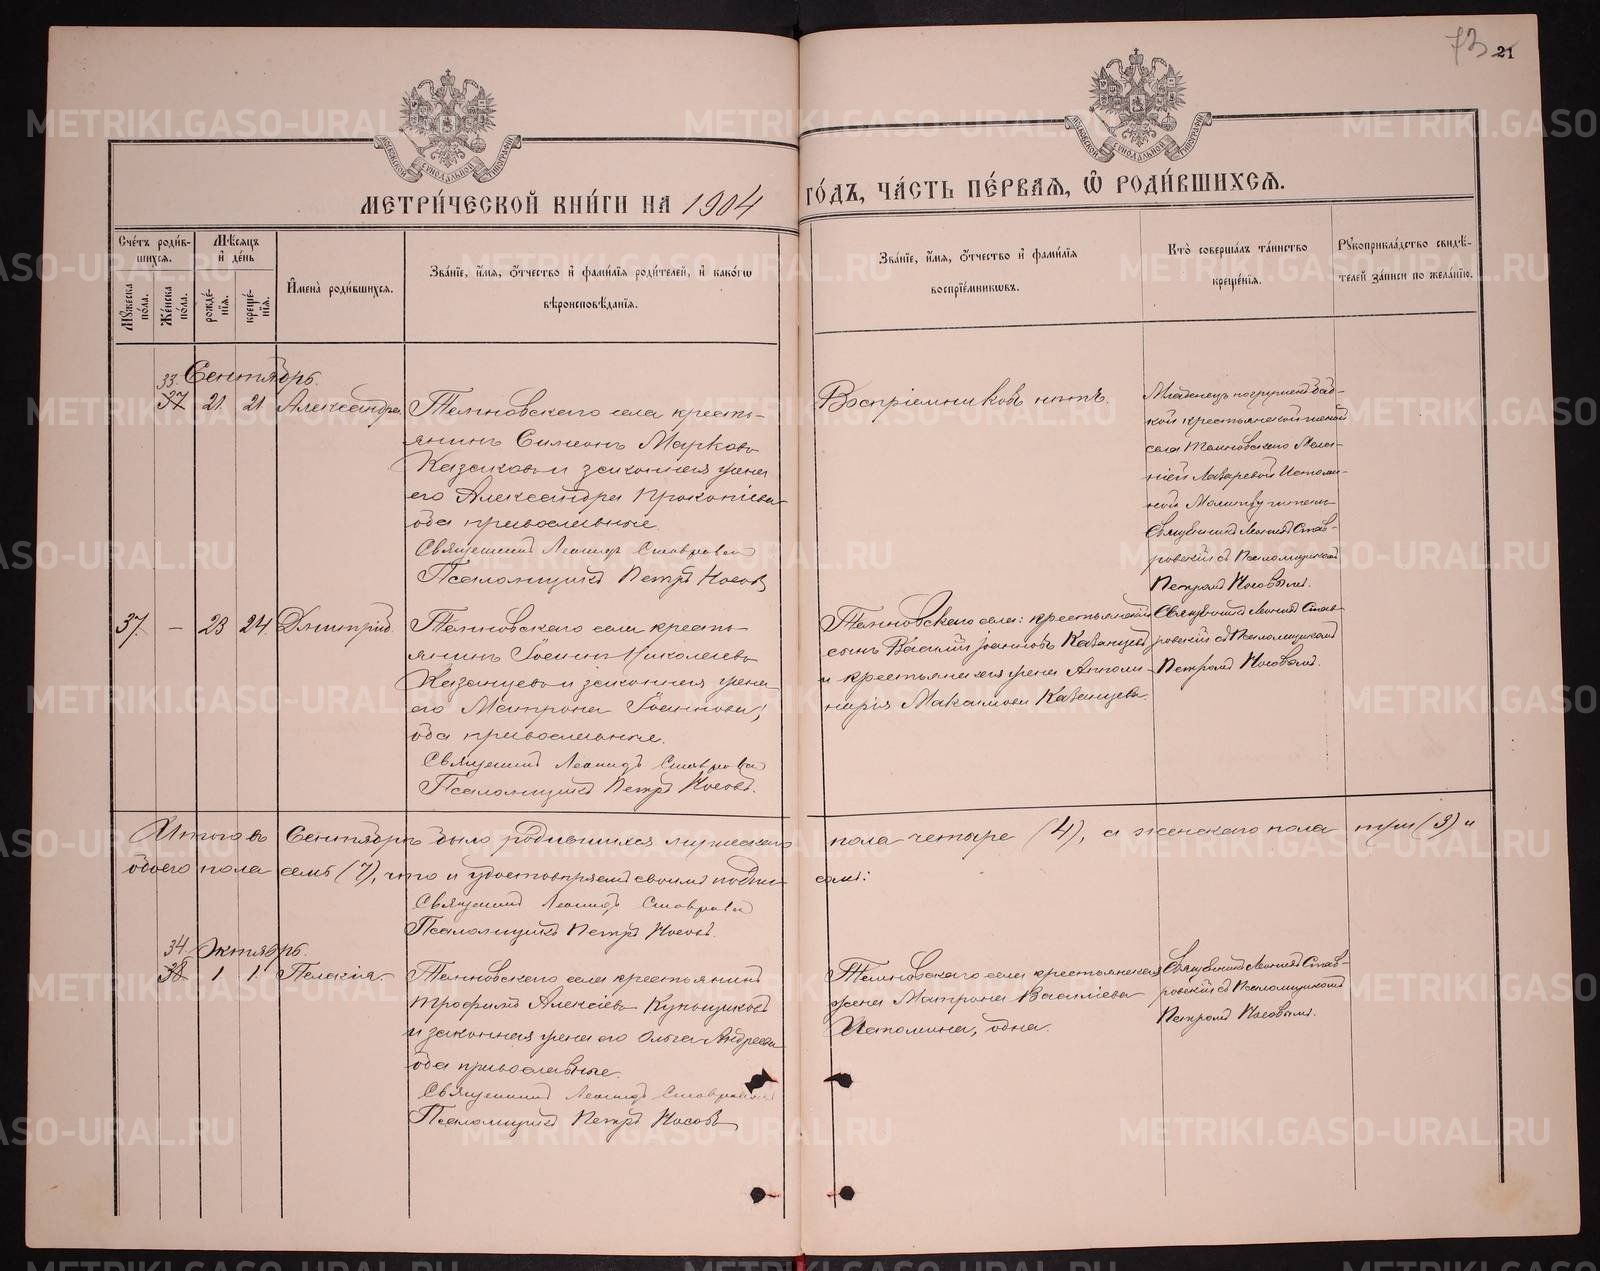 73 21
МОСКОВСКОЙ СУНОДАЛЬНОЙ ТИПОГРАФІИ
МОСКОВСКОЙ СУНОДАЛЬНОЙ ТИПОГРАФІИ
МЕТРИ́ЧЕСКОЙ КНИ́ГИ НА 1904 ГО́ДЪ, ЧА́СТЬ ПЕ́РВАѦ, Ѡ҆ РОДИ́ВШИХСѦ.
Сче́тъ роди́вшихсѧ.
Мꙋ́жеска по́ла.
Же́нска по́ла.
Мѣ́сѧцъ и҆ де́нь
рожде́нїѧ.
креще́нїѧ.
И҆мена̀ роди́вшихсѧ.
Зва́нїе, и҆́мѧ, ѻ҆́тчество и҆ фами́лїѧ роди́телей, и҆ како́гѡ
вѣроисповѣ́данїѧ.
Зва́нїе, и҆́мѧ, ѻ҆́тчество и҆ фами́лїѧ
воспрїе́мникѡвъ.
Кто̀ соверша́лъ та́инство
креще́нїѧ.
Рꙋкоприкла́дство свидѣ́-
телей за́писи по жела́нїю.
33. Сентябрь.
37 21 21 Александра.
Темновскаго села кресть-
янинъ Симеонъ Марковъ
Казаковъ и законная жена
его Александра Прокопіева
оба православные.
Священникъ Леонидъ Ставровскій
Псаломщикъ Петръ Носовъ
Воспріемниковъ нѣтъ.
Младенецъ погруженъ баб-
кой крестьянской женой
села Темновскаго Мела-
ніей Лазаревой Истоми-
ной. Молитву читалъ
Священникъ Леонидъ Став-
ровскій съ Псаломщикомъ
Петромъ Носовымъ.
37. — 23 24. Димитрій.
Темновскаго села кресть-
янинъ Іоаннъ Николаевъ
Казанцевъ и законная жена
его Матрона Іоаннова;
оба православные.
Священникъ Леонидъ Ставровскій
Псаломщикъ Петръ Носовъ.
Темновскаго села: крестьянскій
сынъ Василій Іоанновъ Казанцевъ
и крестьянская жена Аполли-
нарія Максимова Казанцева.
Священникъ Леонидъ Став-
ровскій съ Псаломщикомъ
Петромъ Носовымъ.
Итого въ Сентябрѣ было родившихся мужескаго пола четыре (4), а женскаго пола три (3) и
обоего пола семь (7), что и удостовѣряемъ своимъ подпи-сомъ:
Священникъ Леонидъ Ставровскій
Псаломщикъ Петръ Носовъ.
34. Октябрь.
38 1 1 Пелагія.
Темновскаго села крестьянинъ
Трофимъ Алексіевъ
и законная жена его Ольга Андреева
оба православные.
Священникъ Леонидъ Ставровскій
Псаломщикъ Петръ Носовъ
Темновскаго села крестьянская
жена Матрона Василіева
Истомина, одна.
Священникъ Леонидъ Став-
ровскій съ Псаломщикомъ
Петромъ Носовымъ.
METRIKI.GASO-URAL.RU